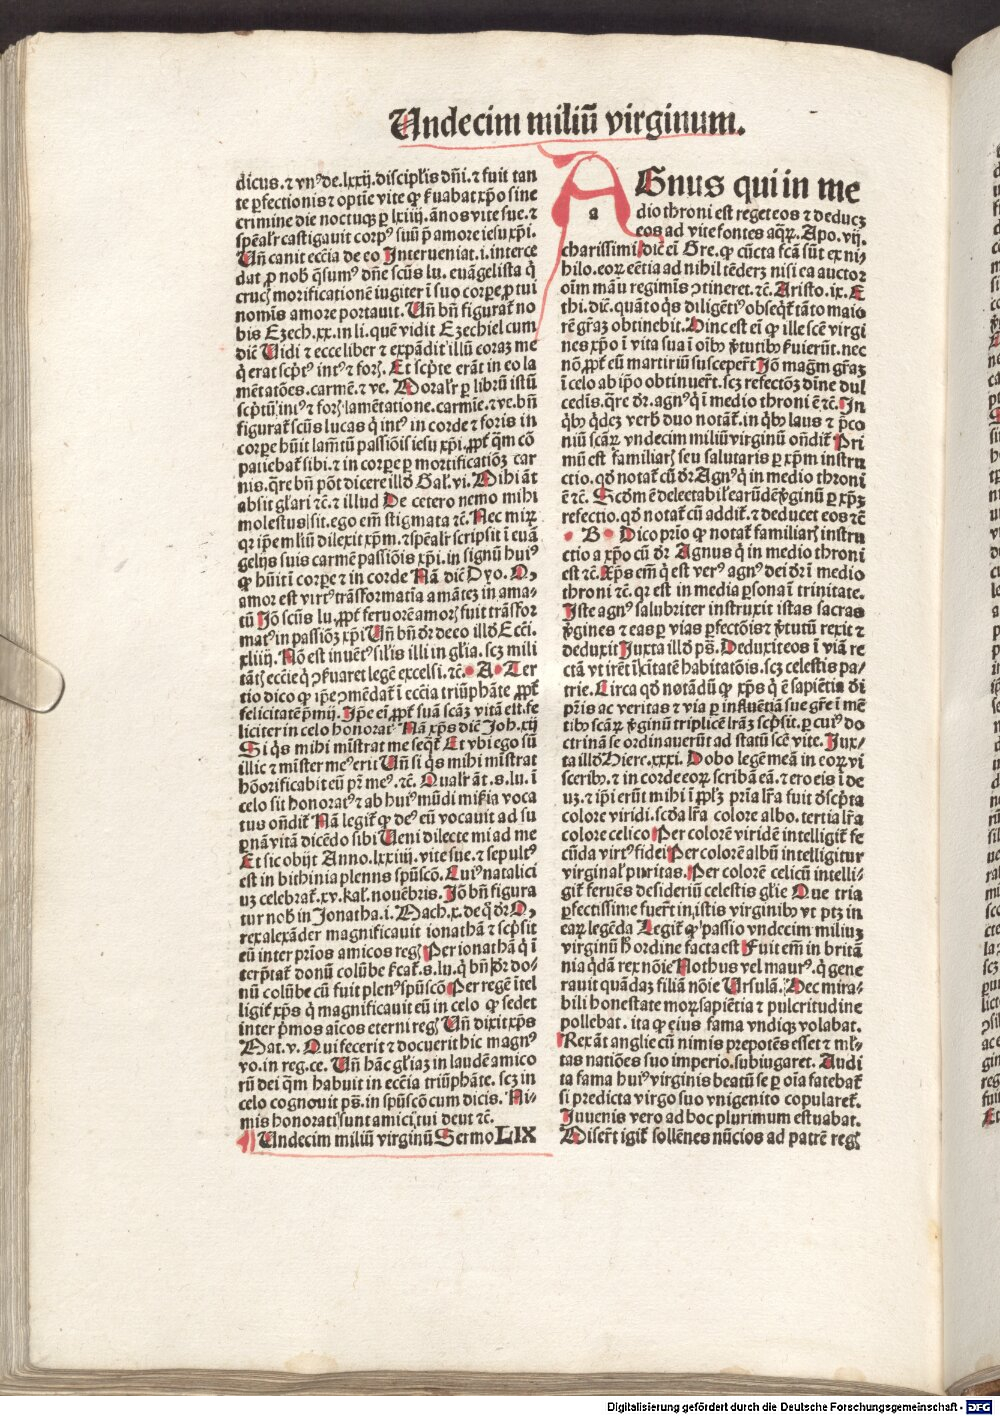 Undecim miliū virginum.
dicus. ⁊ vn⁹ de. lxxij. discipl̄is dn̄i. ⁊ fuit tan
te ꝑfectionis ⁊ optīe vite ꝙ ẜuabat xp̄o sine
crimine die noctuqꝫ ꝑ lxiiij. ānos vite sue. ⁊
sꝑeal̄r castigauit corp⁹ suū ꝓ amore iesu xp̄i.
Vn̄ canit ecc̄ia de eo Interueniat. i. interce
dat ꝑ nob̄ q̄sum⁹ dn̄e sc̄us lu. euāgelista q̄
cruc̄ꝫ morificationē iugiter ī suo corꝑe ꝓ tui
nomīs amore portauit. Vn̄ bn̄ figurat̄ no
bis Ezech. xx. in li. quē vidit Ezechiel cum
dic̄ Vidi ⁊ ecce liber ⁊ expādit illū coraꝫ me
q̄ erat sc̄pt⁹ int⁹ ⁊ foꝝ. Et sc̄pte erāt in eo la
mētatōes. carmē. ⁊ ve. Moral̄r ꝑ librū istū
sc̄ptū int⁹ ⁊ foꝝ lamētatione. carmīe. ⁊ ve. bn̄
figurat̄ sc̄us lucas q̄ int⁹ in corde ⁊ foris in
corꝑe hūit lam̄tū passiōis iesu xp̄i. ꝓpt̄ q̄m cō
patiebat̄ sibi. ⁊ in corꝑe ꝑ mortificatiōꝫ car
nis. q̄re bn̄ pōt dicere illđ Gal̄. vi. Mihi āt
absit gl̄ari ⁊c̄. ⁊ illud De cetero nemo mihi
molestus sit. ego em̄ stigmata ⁊c̄. Nec miꝝ
qꝛ ip̄e mltū dilexit xp̄m. ⁊ sꝑeal̄r scripsit ī euā
gelijs suis carmē passiōis xp̄i. in signū hui⁹
ꝙ hūit ī corꝑe ⁊ in corde Nā dic̄ Dyo. ꝙ
amor est virt⁹ trāsformatīa amāteꝫ in ama-
tū Jō sc̄us lu. ꝓpt̄ feruorē amoꝝ fuit trāsfor
mat⁹ in passiōꝫ xp̄i Vn̄ bn̄ dr̄ de eo illđ Ecc̄i.
xliiij. Nō est inuēt⁹ sil̄is illi in gl̄ia. scꝫ mili
tāꝝ ecc̄ie q̄ ꝯẜuaret legē excelsi. ⁊c̄. A Ter
tio dico ꝙ ip̄e ꝯmēdat̄ ī ecc̄ia triūphāte ꝓpt̄
felicitatē p̄mij. Ip̄e ei ꝓpt̄ suā scāꝫ vitā elt̄. fe
liciter in celo honorat̄ Nā xp̄s dic̄ Joh. xij
Si q̄s mihi mīstrat me seqt̄ Et vbi ego sū
illic ⁊ mīster me⁹ erit Vn̄ si q̄s mihi mīstrat
hōorificabit eū pr̄ me⁹. ⁊c̄. Qual̄r āt. s. lu. ī
celo sit honorat⁹ ⁊ ab hui⁹ mūdi miẜia voca
tus ondit̄ Nā legit̄ ꝙ de⁹ eū vocauit ad su
ꝑnā vitā dicēdo sibi Veni dilecte mi ad me
Et sic obijt Anno. lxxiiij. vite sue. ⁊ sepult⁹
est in bithinia plenus spūscō. Cui⁹ natalici
uꝫ celebrat̄. xv. kal̄. nouēbris. Jō bn̄ figura
tur nob̄ in Jonatha. i. Mach. x. de q̄ dr̄ ꝙ
rex alexāder magnificauit ionathā ⁊ sc̄psit
eū inter prīos amicos reḡ Per ionathā q̄ ī
terp̄tat̄ donū colūbe ẜcat̄. s. lu. q̄ bn̄ dr̄ do-
nū colūbe cū fuit plen⁹ spūscō Per regē ītel
ligit̄ xp̄s q̄ magnificauit eū in celo ꝙ sedet
inter p̄mos aīcos eterni reḡ Vn̄ dixit xp̄s
Mat. v. Qui fecerit ⁊ docuerit hic magn⁹
vo. in reg. ce. Vn̄ hāc gl̄iaꝫ in laudē amico
rū dei q̄m habuit in ecc̄ia triūphāte. scꝫ in
celo cognouit ps̄. in spūscō cum dicis. Ni-
mis honorati sunt amici tui deus ⁊c̄.
Undecim miliū virginū Sermo LIX
AGnus qui in me
a
dio throni est reget eos ⁊ deducꝫ
eos ad vite fontes aq̄ꝝ. Apo. vij.
charissimi dic̄ ei Gre. ꝙ cūcta fcā sūt ex ni-
hilo. eoꝝ eētia ad nihil tēderꝫ nisi ea auctor
oīm manu regimīs ꝯtineret. ⁊c̄. Aristo. ix. E
thi. dic̄. quāto q̄s diligēti⁹ obseqt̄ tāto maio
rē gr̄aꝫ obtinebit. Hinc est ei ꝙ ille scē virgi
nes xp̄o ī vita sua ī oībꝰ v̄tutibꝰ ẜuierūt. nec
nō ꝓpt̄ eū martiriū susceper̄t Jō maḡm gr̄aꝫ
ī celo ab ip̄o obtinuer̄t. scꝫ refectōꝫ dīne dul
cedis. q̄re dr̄. agn⁹ q̄ ī medio throni ē ⁊c̄. In
q̄bꝰ q̄dēꝫ verb̄ duo notāt̄. in q̄bꝰ laus ⁊ p̄co
niū scāꝝ vndecim miliū virginū ondit̄ Pri
mū est familiaꝝ seu salutaris ꝑ xp̄m instru
ctio. qđ notat̄ cū dr̄ Agn⁹ q̄ in medio throni
ē ⁊c̄. Scđm ē delectabil̄ earūdē v̄ginū ꝑ xp̄ꝫ
refectio. qđ notat̄ cū addit̄. ⁊ deducet eos ⁊c̄
B Dico prīo ꝙ notat̄ familiaꝝ instru
ctio a xp̄o cū dr̄ Agnus q̄ in medio throni
est ⁊c̄. Xp̄s em̄ q̄ est ver⁹ agn⁹ dei dr̄ ī medio
throni ⁊c̄. qꝛ est in media ꝑsona ī trinitate.
Iste agn⁹ salubriter instruxit istas sacras
v̄gines ⁊ eas ꝑ vias ꝑfectōis ⁊ v̄tutū rexit ⁊
deduxit Juxta illđ ps̄. Deduxit eos ī viā re
ctā vt irēt ī ciuitatē habitatōis. scꝫ celestis pa-
trie. Circa qđ notādū ꝙ xp̄s q̄ ē sapiētia dī
pr̄is ac veritas ⁊ via ꝑ influētiā sue gr̄e ī mē
tibꝰ scāꝝ v̄ginū triplicē lr̄aꝫ sc̄psit. ꝑ cui⁹ do
ctrinā se ordinauerūt ad statū scē vite. Jux-
ta illđ Hiere. xxxi. Dabo legē meā in eoꝝ vi
sceribꝰ. ⁊ in corde eoꝝ scribā eā. ⁊ ero eis ī de
uꝫ. ⁊ ip̄i erūt mihi ī ꝓpl̄ꝫ prīa lr̄a fuit đsc̄pta
colore viridi. scđa lr̄a colore albo. tertia lr̄a
colore celico Per colorē viridē intelligit̄ fe
cūda virt⁹ fidei Per colorē albū intelligitur
virginal̄ puritas. Per colorē celicū intelli-
git̄ feruēs desideriū celestis gl̄ie Que tria
ꝑfectissime fuer̄t in istis virginibꝰ vt ptꝫ in
eaꝝ legēda Legit̄ ꝙ passio vndecim miliuꝫ
virginū h̄ ordine facta est Fuit em̄ in britā
nia q̄dā rex nōie Nothus vel maur⁹. q̄ gene
rauit quādaꝫ filiā nōie Vrsulā. Hec mira-
bili honestate moꝝ sapiētia ⁊ pulcritudine
pollebat. ita ꝙ eius fama vndiqꝫ volabat.
Rex āt anglie cū nimis prepotēs esset ⁊ ml̄-
tas natiōes suo imperio. subiugaret. Audi
ta fama hui⁹ virginis beatū se ꝑ oīa fatebat̄
si predicta virgo suo vnigenito copularet̄.
Juuenis vero ad hoc plurimum estuabat.
Miser̄t igit̄ sollēnes nūcios ad patrē reḡ
Digitalisierung gefördert durch die Deutsche Forschungsgemeinschaft - DFG